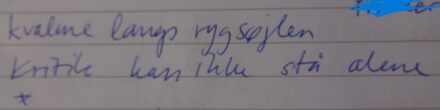 kvalme langs rygsøjlen
Kritik kan ikke stå alene
*